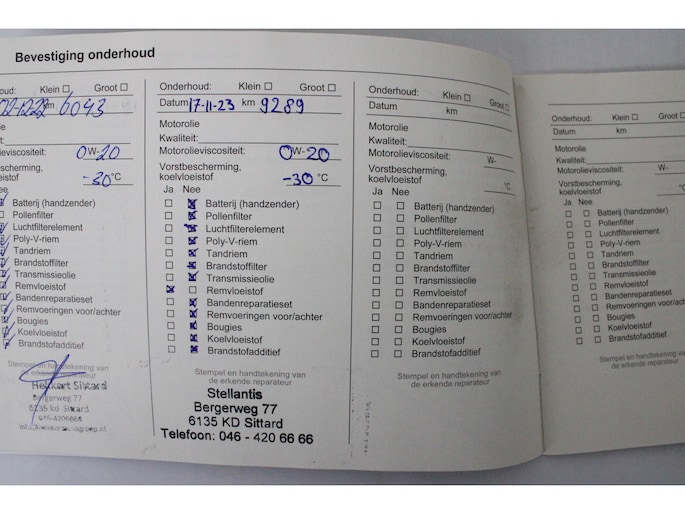 Bevestiging onderhoud
houd: Klein ☐ Groot ☐
02-12-22 km 6043
olie
eit:
olieviscositeit: 0W-20
escherming,
eistof -30 °C
Nee
Batterij (handzender)
Pollenfilter
Luchtfilterelement
Poly-V-riem
Tandriem
Brandstoffilter
Transmissieolie
Remvloeistof
Bandenreparatieset
Remvoeringen voor/achter
Bougies
Koelvloeistof
Brandstofadditief
Stempel en handtekening van
de erkende reparateur
Hekkert Sittard
Bergerweg 77
6135 kd Sittard
Onderhoud: Klein ☐ Groot ☐
Datum 17-11-23 km 9289
Motorolie
Kwaliteit:
Motorolieviscositeit: 0W-20
Vorstbescherming,
koelvloeistof -30 °C
Ja Nee
Batterij (handzender)
Pollenfilter
Luchtfilterelement
Poly-V-riem
Tandriem
Brandstoffilter
Transmissieolie
Remvloeistof
Bandenreparatieset
Remvoeringen voor/achter
Bougies
Koelvloeistof
Brandstofadditief
Stempel en handtekening van
de erkende reparateur
Stellantis
Bergerweg 77
6135 KD Sittard
Telefoon: 046 - 420 66 66
Onderhoud: Klein ☐ Groot ☐
Datum km
Motorolie
Kwaliteit:
Motorolieviscositeit: W-
Vorstbescherming,
koelvloeistof °C
Ja Nee
Batterij (handzender)
Pollenfilter
Luchtfilterelement
Poly-V-riem
Tandriem
Brandstoffilter
Transmissieolie
Remvloeistof
Bandenreparatieset
Remvoeringen voor/achter
Bougies
Koelvloeistof
Brandstofadditief
Stempel en handtekening van
de erkende reparateur
Onderhoud: Klein ☐ Groot ☐
Datum km
Motorolie
Kwaliteit:
Motorolieviscositeit: W-
Vorstbescherming,
koelvloeistof °C
Ja Nee
Batterij (handzender)
Pollenfilter
Luchtfilterelement
Poly-V-riem
Tandriem
Brandstoffilter
Transmissieolie
Remvloeistof
Bandenreparatieset
Remvoeringen voor/achter
Bougies
Koelvloeistof
Brandstofadditief
Stempel en handtekening van
de erkende reparateur